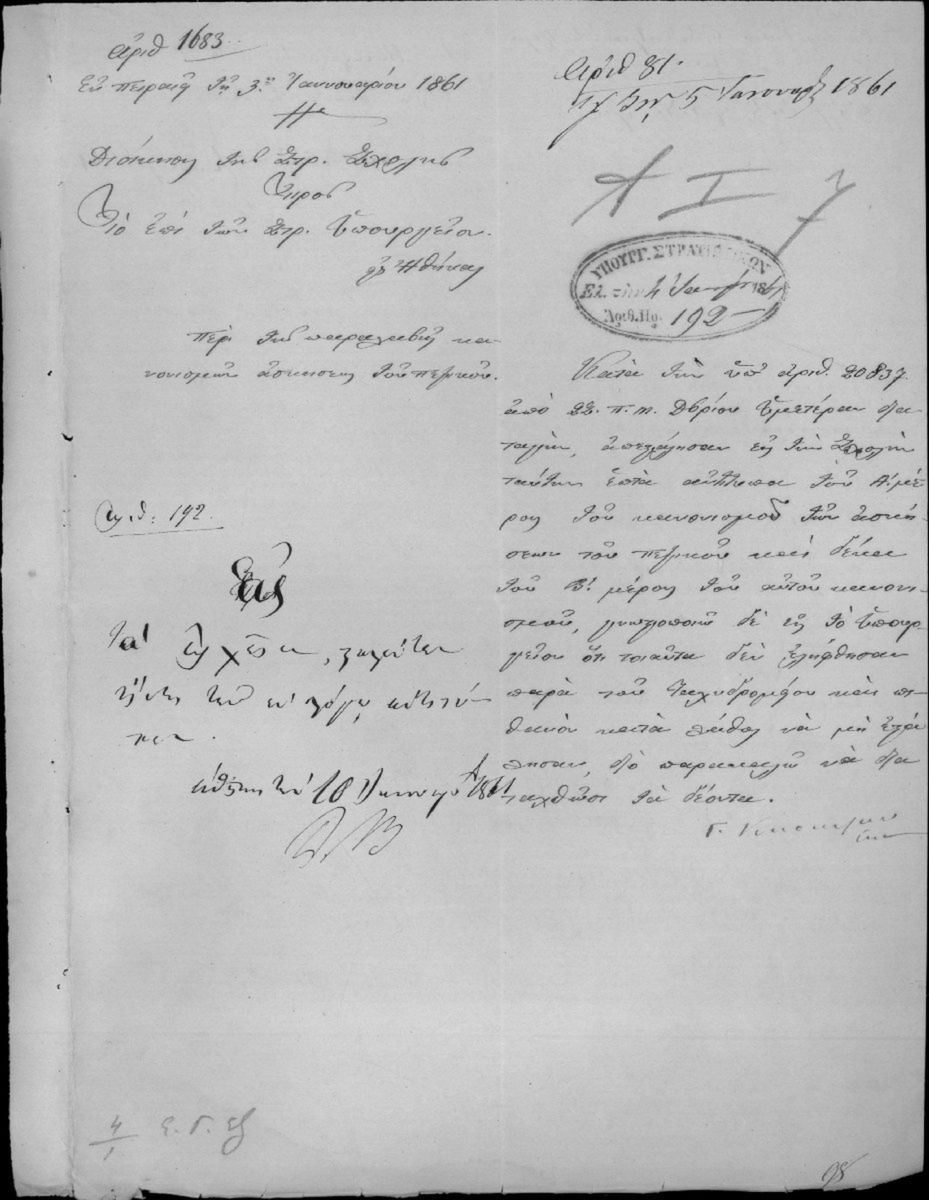 ἀριθ 1683.
Ἐν Πειραιεῖ τῇ 3ῃ Ἰαννουαρίου 1861
Διοίκησις τῆς Στρ. Σχολῆς
Πρὸς
Τὸ ἐπὶ τῶν Στρ. Ὑπουργεῖον.
εἰς Ἀθήνας
Περὶ τῆς παραλαβῆς κα-
νονισμῶν ἀσκήσεως τοῦ πεζικοῦ.
Ἀριθ: 192.
Τὰ
τῶν ἐν λόγῳ ἀντιτύ-
πων.
Ἀθήνῃσι τὴν 10 Ἰανουαρ 1861
Ἀριθ 81.
5 Ἰανουαρ 1861
Α Ι
ΥΠΟΥΡΓ. ΣΤΡΑΤΙΩΤΙΚΩΝ
Ἐλ. 4 Ἰαν 1861
Ἀριθ. Πρ. 192
Κατὰ τὴν ὑπ' ἀριθ. 20837
ἀπὸ 22. π. μ. Δβρίου Ὑμετέραν δια
ταγὴν, ἀπεστάλησαν εἰς τὴν Σχολὴν
ταύτην ἑπτὰ ἀντίτυπα τοῦ Α. μέ
ρους τοῦ κανονισμοῦ τῶν ἀσκή
σεων τοῦ πεζικοῦ καὶ δέκα
τοῦ Β. μέρους τοῦ αὐτοῦ κανονι
σμοῦ, γνωστοποιῶ δὲ εἰς τὸ Ὑπουρ
γεῖον ὅτι τοιαῦτα δὲν ἐλήφθησαν
παρὰ τοῦ Ταχυδρομείου καὶ πι
θανὸν κατὰ λάθος νὰ μὴ ἐστά
λησαν, διὸ παρακαλῶ νὰ δια
ταχθῶσι τὰ δέοντα.
4
1
Ε. Γ.
98